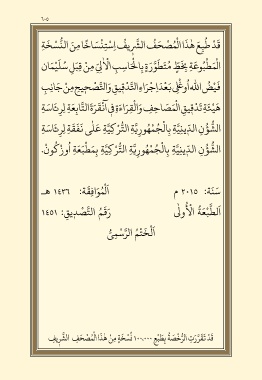 ٦٠٥
قَدْ طُبِعَ هٰذَا الْمُصْحَفُ الشَّرِيفُ اِسْتِنْسَاخًا مِنَ النُّسْخَةِ
الْمَطْبُوعَةِ بِخَطٍّ مُتَطَوِّرَةٍ بِالْحَاسِبِ الْآلِيِّ مِنْ قِبَلِ سُلَيْمَان
فَيْضُ اللّٰه اُوغْلِى بَعْدَ اِجْرَاءِ التَّدْقِيقِ وَالتَّصْحِيحِ مِنْ جَانِبِ
هَيْئَةِ تَدْقِيقِ الْمَصَاحِفِ وَالْقِرَاءَةِ فِى آنْقَرَةَ التَّابِعَةِ لِرِئَاسَةِ
الشُّؤُنِ الدِّينِيَّةِ بِالْجُمْهُورِيَّةِ التُّرْكِيَّةِ عَلٰى نَفَقَةِ لِرِئَاسَةِ
الشُّؤُنِ الدِّينِيَّةِ بِالْجُمْهُورِيَّةِ التُّرْكِيَّةِ بِمَطْبَعَةِ اُوزْكُونْ.
سَنَة: ٢٠١٥ م اَلْمُوَافَقَة: ١٤٣٦ هـ
اَلطَّبْعَةُ الْأُولٰى رَقَمُ التَّصْدِيقِ: ١٤٥١
اَلْخَتْمُ الرَّسْمِىُّ
قَدْ تَقَرَّرَتِ الرُّخْصَةُ بِطَبْعِ ١٠٠.٠٠٠ نُسْخَةٍ مِنْ هٰذَا الْمُصْحَفِ الشَّرِيفِ